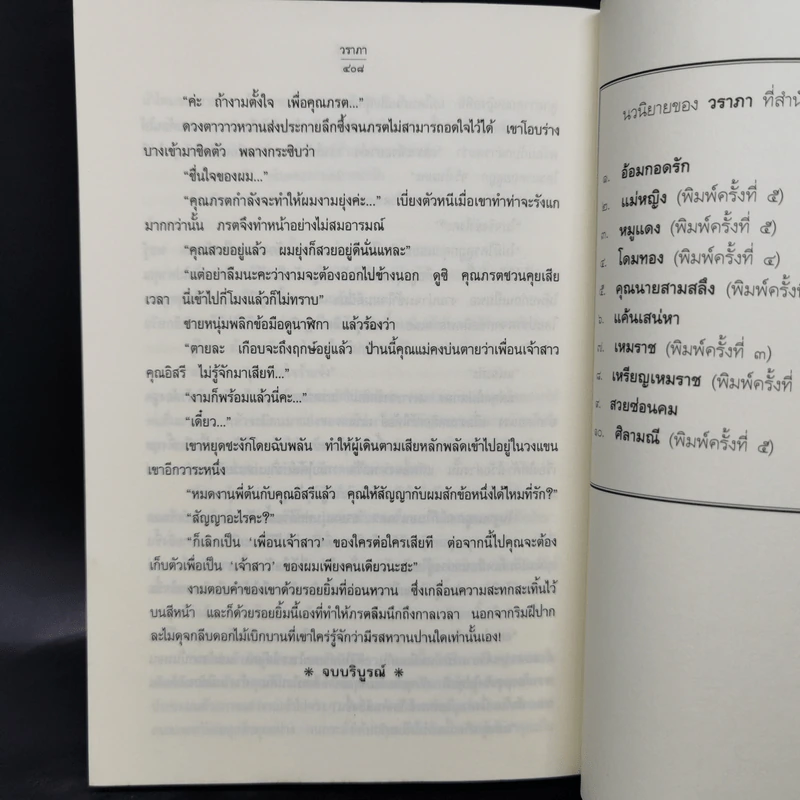 วราภา
๔๐๘
“ค่ะ ถ้างามตั้งใจ เพื่อคุณภรต...”
ดวงตาวาวหวานส่งประกายลึกซึ้งจนภรตไม่สามารถอดใจไว้ได้ เขาโอบร่าง
บางเข้ามาชิดตัว พลางกระซิบว่า
“ชื่นใจของผม...”
“คุณภรตกำลังจะทำให้ผมงามยุ่งค่ะ...” เบี่ยงตัวหนีเมื่อเขาทำท่าจะรังแก
มากกว่านั้น ภรตจึงทำหน้าอย่างไม่สมอารมณ์
“คุณสวยอยู่แล้ว ผมยุ่งก็สวยอยู่ดีนั่นแหละ”
“แต่อย่าลืมนะคะว่างามจะต้องออกไปข้างนอก ดูซิ คุณภรตชวนคุยเสีย
เวลา นี่เข้าไปกี่โมงแล้วก็ไม่ทราบ”
ชายหนุ่มพลิกข้อมือดูนาฬิกา แล้วร้องว่า
“ตายละ เกือบจะถึงฤกษ์อยู่แล้ว ป่านนี้คุณแม่คงบ่นตายว่าเพื่อนเจ้าสาว
คุณอิสรี ไม่รู้จักมาเสียที...”
“งามก็พร้อมแล้วนี่คะ...”
“เดี๋ยว...”
เขาหยุดชะงักโดยฉับพลัน ทำให้ผู้เดินตามเสียหลักพลัดเข้าไปอยู่ในวงแขน
เขาอีกวาระหนึ่ง
“หมดงานพี่ต้นกับคุณอิสรีแล้ว คุณให้สัญญากับผมสักข้อหนึ่งได้ไหมที่รัก?”
“สัญญาอะไรคะ?”
“ก็เลิกเป็น ‘เพื่อนเจ้าสาว’ ของใครต่อใครเสียที ต่อจากนี้ไปคุณจะต้อง
เก็บตัวเพื่อเป็น ‘เจ้าสาว’ ของผมเพียงคนเดียวนะฮะ”
งามตอบคำของเขาด้วยรอยยิ้มที่อ่อนหวาน ซึ่งเกลื่อนความสะทกสะเทิ้นไว้
บนสีหน้า และก็ด้วยรอยยิ้มนี้เองที่ทำให้ภรตลืมนึกถึงกาลเวลา นอกจากริมฝีปาก
ละไมดุจกลีบดอกไม้เบิกบานที่เขาใคร่รู้จักว่ามีรสหวานปานใดเท่านั้นเอง!
✳ จบบริบูรณ์ ✳
นวนิยายของ วราภา ที่สำนั
๑. อ้อมกอดรัก
๒. แม่หญิง (พิมพ์ครั้งที่ ๕)
๓. หมูแดง (พิมพ์ครั้งที่ ๕)
๔. โดมทอง (พิมพ์ครั้งที่ ๔)
๕. คุณนายสามสลึง (พิมพ์ครั้งที่
๖. แค้นเสน่หา
๗. เหมราช (พิมพ์ครั้งที่ ๓)
๘. เหรียญเหมราช (พิมพ์ครั้งที่
๙. สวยซ่อนคม
๑๐. ศิลามณี (พิมพ์ครั้งที่ ๕)